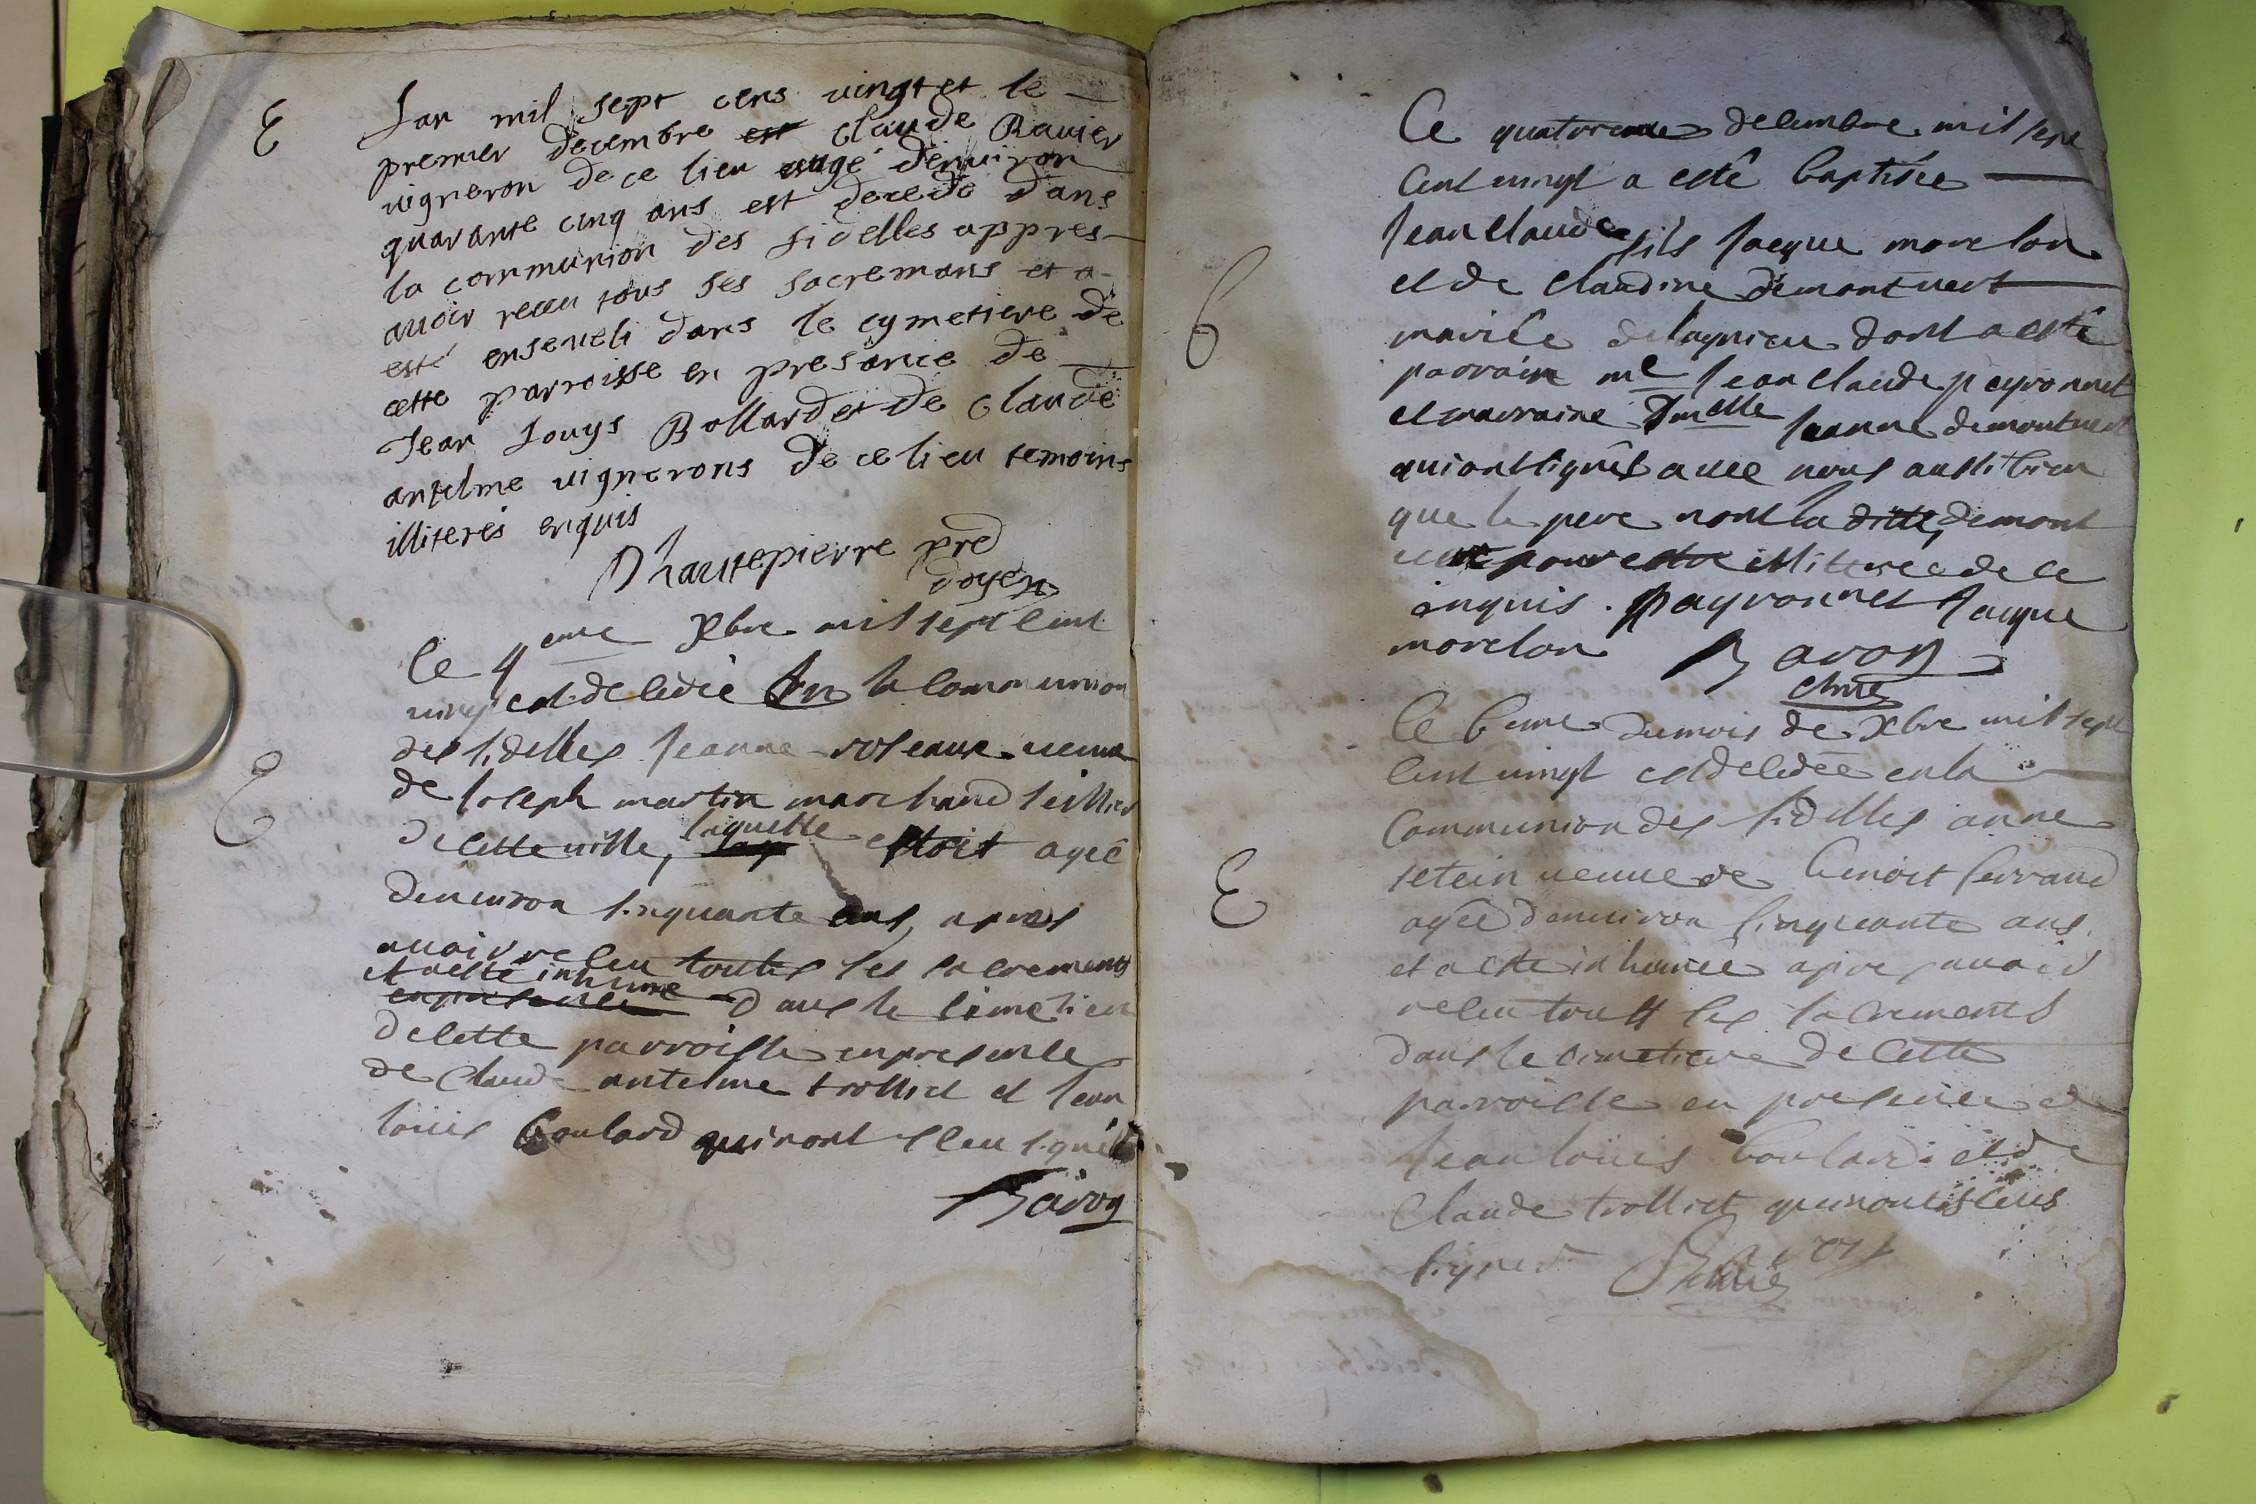 E
Lan mil sept cens vingt et le
premier decembre est Claude Ravier
vigneron de ce lieu aagé denviron
quarante cinq ans est decedé dans
la communion des fidelles appres
avoir receu tous ses sacremans et a
esté enseveli dans le cymetiere de
cette parroisse en presance de
Jean Louys Bollard et de Claude
antelme vignerons de ce lieu temoins
illiterés enquis
Dhautepierre pre
doyen
Ce 4eme Xbre mil sept cent
vingt est decedée en la communion
des fidelles Jeanne veuve
de Joseph martin marchand
E
de cette ville, laquelle estoit agée
denviron sinquante ans, apres
avoir receu toutes les sacrements
et a esté inhumé
en presence dans le cimetiere
de cette parroisse en presence
de Claude antelme trolliet et Jean
louis Boulard qui nont sceu signés
Savoy
Ce quatorzieme decembre mil sept
cent vingt a esté baptisée
Jean Claude fils Jacque morelon
et de Claudine demontvert
B
mariée de lagnieu dont a esté
parrain me Jean Claude peyronnet
et marraine dmelle Jeanne demontvert
qui ont signés avec nous aussi bien
que le pere non la ditte demont
vert pour estre illiteree de ce
enquis. Payronnet Jacque
morelon Savoy
Le 6eme du mois de Xbre mil sept
cent vingt est decedée en la
communion des fidelles anne
setein veuve de benoit ferrand
E
agée denviron sinquante ans
et a esté inhumée apres avoir
receu tous les sacrements
dans le cimetiere de cette
parroisse en presence de
Jean louis boulard et de
Claude trolliet qui nont sceus
signer Savoy